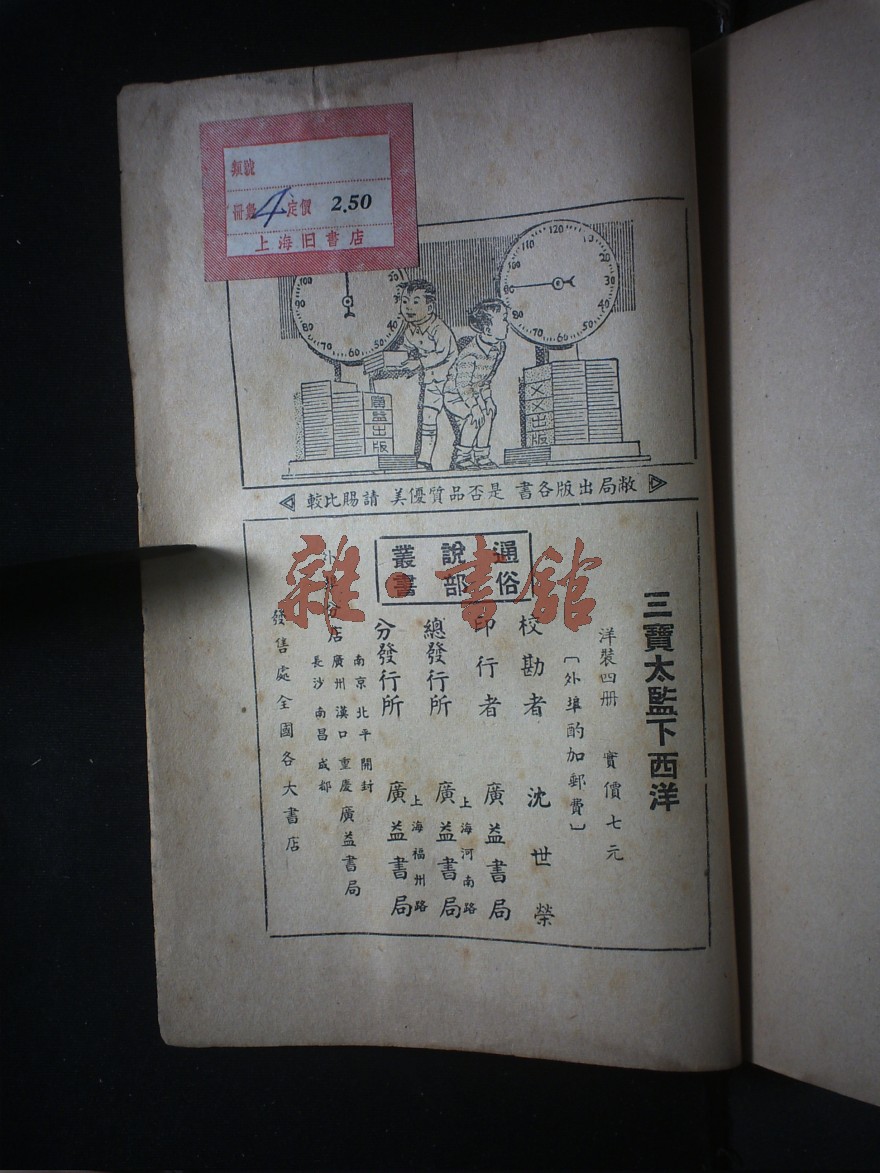 類號
冊數 4 定價 2.50
上海旧書店
120
110
100
90
80
70
60
50
40
30
20
10
100
90
80
70
60
50
40
20
廣益出版
乂乂出版
敝局出版各書 是否品質優美 請賜比較
三寶太監下西洋
洋裝四册 實價七元
〔外埠酌加郵費〕
通俗
說部
叢書
校勘者 沈世榮
印行者 廣益書局
總發行所 上海河南路 廣益書局
分發行所 上海福州路 廣益書局
外埠分店
南京 北平 開封
廣州 漢口 重慶
長沙 南昌 成都
廣益書局
發售處全國各大書店
雜·書館